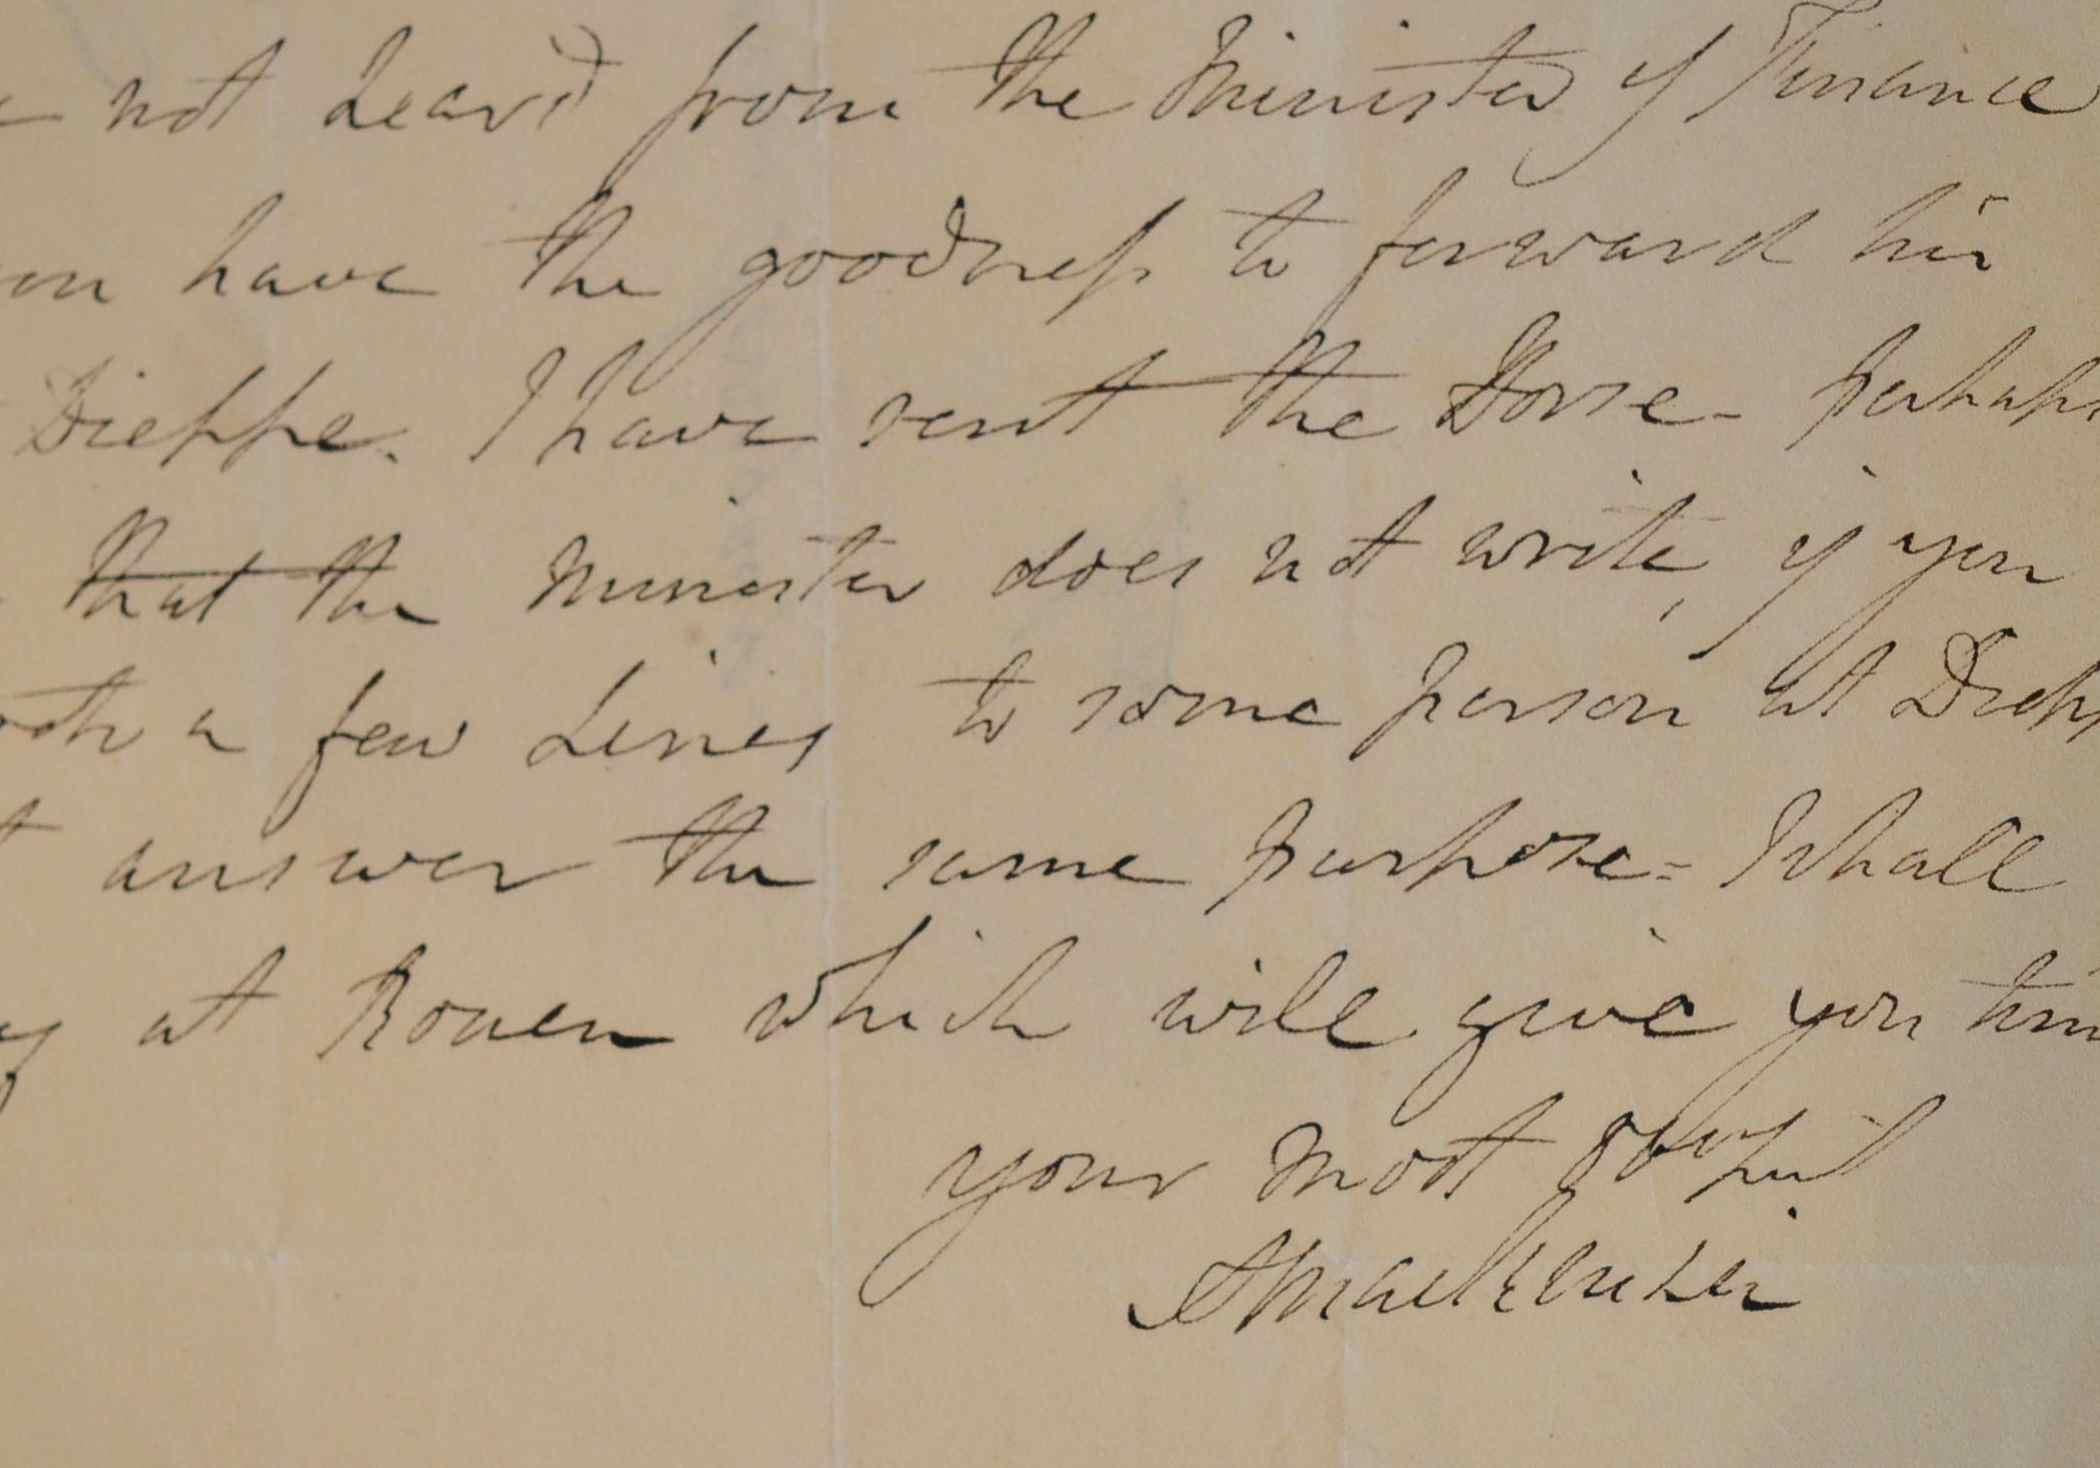 not heard from the Minister of Finance
have the goodness to forward his
Dieppe. I have sent the Horse - perhaps
that the Minister does not write, if you
a few Lines to some person at Diepp
answer the same purpose = I shall
at Rouen which will give you tim
your most